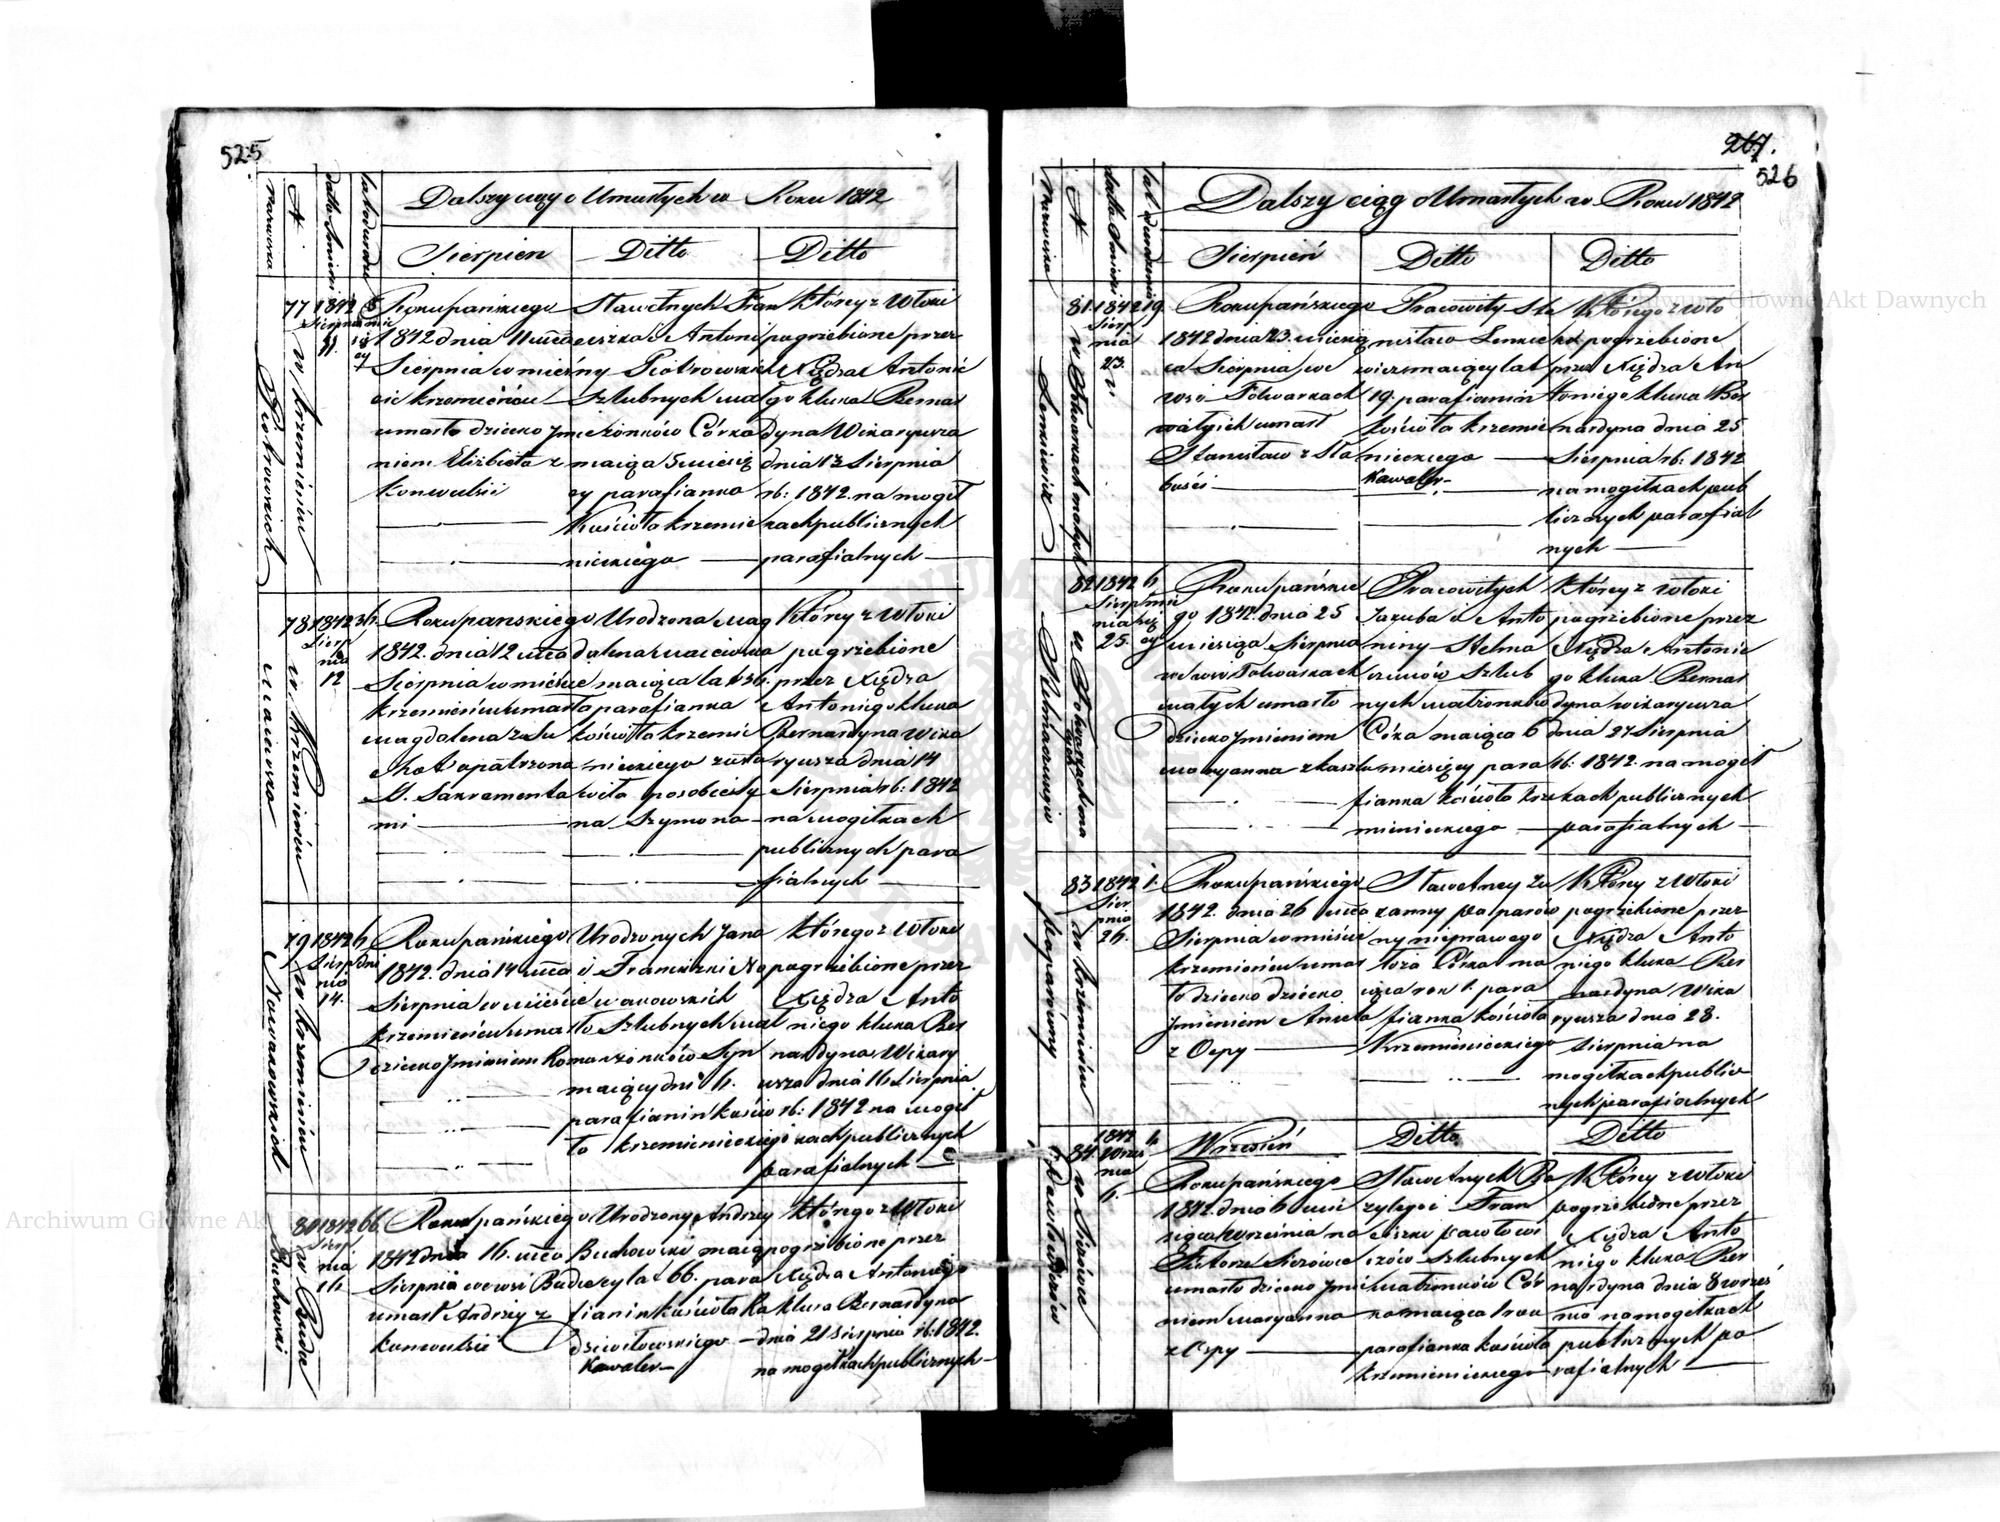 525
Dalszy ciąg o Umarłych w Roku 1842
Nazwiska
N
data Śmierci
Sierpien
Ditto
Ditto
77
1842
Sierpnia
11.
5
w Krzemieńcu
Piotrowskich
Roku pańskiego
1842 dnia 11 mca
Sierpnia w mieś
cie Krzemieńcu
umarło dziecko Jmie
niem Elizbieta z
Konwulsii
Sławetnych Fran
ciszka i Antoni
ny Piotrowskich
Szlubnych mał
żonków Córka
maiąca 5 miesię
cy parafianka
Kościoła Krzemie
nieckiego
Którey zwłoki
pogrzebione przez
Xiędza Antonie
go Kluka Bernar
dyna Wikaryusza
dnia 13 Sierpnia
rb: 1842. na mogił
kach publicznych
parafialnych
78
1842
Sierp
nia
12
36.
w Krzemieńcu
Roku panskiego
1842. dnia 12 mca
Sierpnia w mieście
Krzemieńcu umarła
Magdalena z Su
chot opatrzona
S. Sakramenta
mi
Urodzona Mag
dalena
maiąca lat 36.
parafianka
kościoła Krzemie
nieckiego zosta
wiła po sobie Sy
na Szymona
Którey zwłoki
pogrzebione
przez Xiędza
Antoniego Kluka
Bernardyna Wika
ryusza dnia 14
Sierpnia rb: 1842
na mogiłkach
publicznych para
fialnych
79
1842
Sierp
nia
14.
6
dni
w Krzemieńcu
Nowakowskich
Roku pańskiego
1842. dnia 14 mca
Sierpnia w mieście
Krzemieńcu umarło
Dziecko Jmieniem Roman
Urodzonych Jana
i Franciszki No
wakowskich
Szlubnych mał
żonków Syn
maiący dni 6.
parafianin kościo
ła Krzemienieckiego
Którego zwłoki
pogrzebione przez
Xiędza Anto
niego Kluka Ber
nardyna Wikary
usza dnia 16 Sierpnia
rb: 1842 na mogił
kach publicznych
parafialnych
80
1842
Sierp
nia
16
66
Buchowski
Roku pańskiego
1842 dnia 16. mca
Sierpnia we wsi
umarł Andrzey z
Konwulsii
Urodzony Andrzey
Buchowski maią
cy lat 66. para
fianin kościoła Ka
dziwiłowskiego
Kawaler
Którego zwłoki
pogrzebione przez
Xiędza Antoniego
Kluka Bernardyna
dnia 21 Sierpnia rb: 1842.
na mogiłkach publicznych
267.
526
Dalszy ciąg o Umarłych w Roku 1842
Nazwiska
N
data Śmierci
Sierpień
Ditto
Ditto
81.
1842
Sierp
nia
23.
19.
w Folwarkach małych
Lenkiewicz
Roku pańskiego
1842 dnia 23. miesią
ca Sierpnia we
wsi Folwarkach
małych umarł
Stanisław z Sła
bości
Pracowity Sta
nisław Lenkie
wicz maiący lat
19. parafianin
kościoła Krzemie
nieckiego
Kawaler
Którego zwło
ki pogrzebione
przez Xiędza An
toniego Kluka Ber
nardyna dnia 25
Sierpnia rb: 1842
na mogiłkach pub
licznych parafial
nych
82
1842
Sierp
nia
25.
6.
Roku pańskie
go 1842. dnia 25
miesiąca Sierpnia
we wsi Folwarkach
małych umarło
dziecko Jmieniem
Maryanna z kaszlu
Pracowitych
Jakuba i Anto
niny Stelma
szczuków Szlub
nych małżonków
Córka maiąca 6
miesięcy para
fianka kościoła Krze
mienieckiego
Którey zwłoki
pogrzebione przez
Xiędza Antonie
go Kluka Bernar
dyna wikaryusza
dnia 27 Sierpnia
rb: 1842. na mogił
kach publicznych
parafialnych
83
1842
Sier
pnia
26.
1.
w Krzemieńcu
Roku pańskiego
1842. dnia 26 mca
Sierpnia w mieście
Krzemieńcu umar
ło dziecko dziecko
Jmieniem Aniela
z Ospy
Sławetney Zu
zanny Paparów
ny nieprawego
łoża Córka ma
iąca rok 1. para
fianka kościoła
Krzemienieckiego
Którey zwłoki
pogrzebione przez
Xiędza Anto
niego Kluka Ber
nardyna Wika
ryusza dnia 28.
Sierpnia na
mogiłkach public
nych parafialnych
84
1842
Wrześ
nia
6.
Pawłowiczów
Wrzesień
Ditto
Ditto
Roku pańskiego
1842. dnia 6 mie
siąca Września na
Futorze
umarło dziecko Jmie
niem Maryanna
z Ospy
Sławetnych Ba
zylego i Fran
ciszki Pawłowi
czów Szlubnych
małżonków Cór
ka maiąca 1 rok
parafianka kościoła
Krzemienieckiego
Którey zwłoki
pogrzebione przez
Xiędza Anto
niego Kluka Ber
nardyna dnia 8 wrześ
nia na mogiłkach
publicznych pa
rafialnych
Archiwum Główne Akt Dawnych